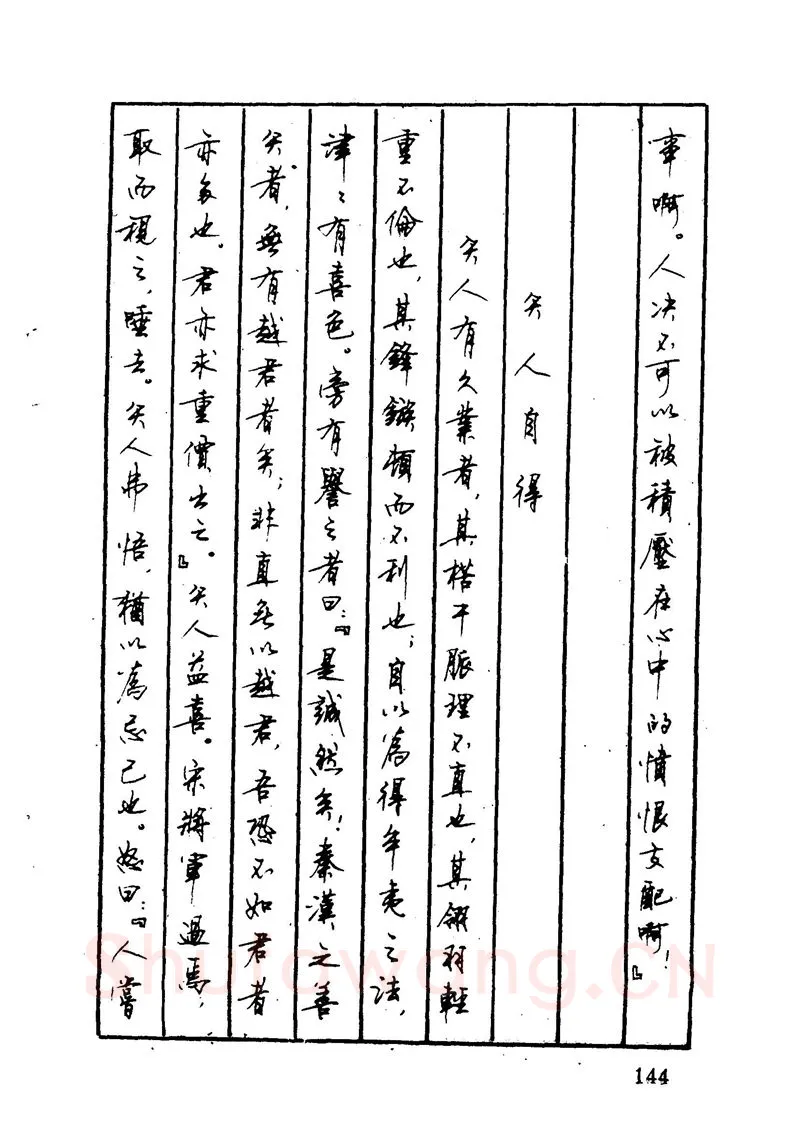 事啊。人决不可以被積壓在心中的憤恨支配啊！』
矢人自得
矢人有久業者，其楛干脈理不直也，其翎羽輕
重不倫也，其鋒鏃頓而不利也；自以為得牟夷之法，
津々有喜色。旁有譽之者曰：『是誠然矣！秦漢之善
矢者，無有越君者矣；非直無以越君，吾恐不如君者
亦多也。君亦求重價出之。』矢人益喜。宋將軍過焉，
取而視之，唾去。矢人弗悟，猶以為忌己也。怒曰：『人嘗
144
Shufawang.CN